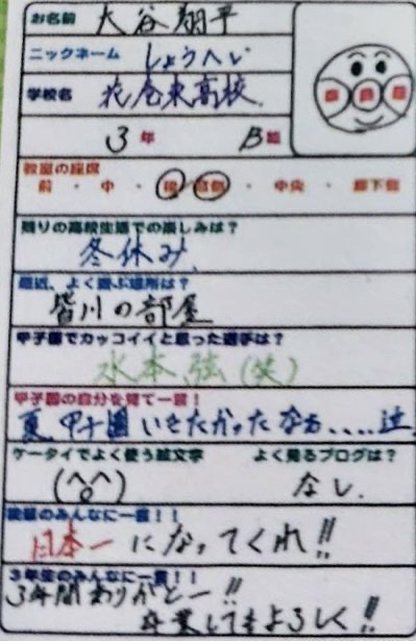 お名前 大谷翔平
ニックネーム しょうへい
学校名 花巻東高校.
3年 B組
教室の座席
前 ・ 中 ・ 後 窓側 ・ 中央 ・ 廊下側
残りの高校生活での楽しみは?
冬休み.
最近、よく遊ぶ場所は?
皆川の部屋
甲子園でカッコイイと思った選手は?
水本弦(笑)
甲子園の自分を見て一言!
夏、甲子園いきたかったなぁ....辻
ケータイでよく使う絵文字 よく見るブログは?
なし.
後輩のみんなに一言!!
日本一になってくれ!!
3年生のみんなに一言!!
3年間ありがとー!!
卒業してもよろしく!!